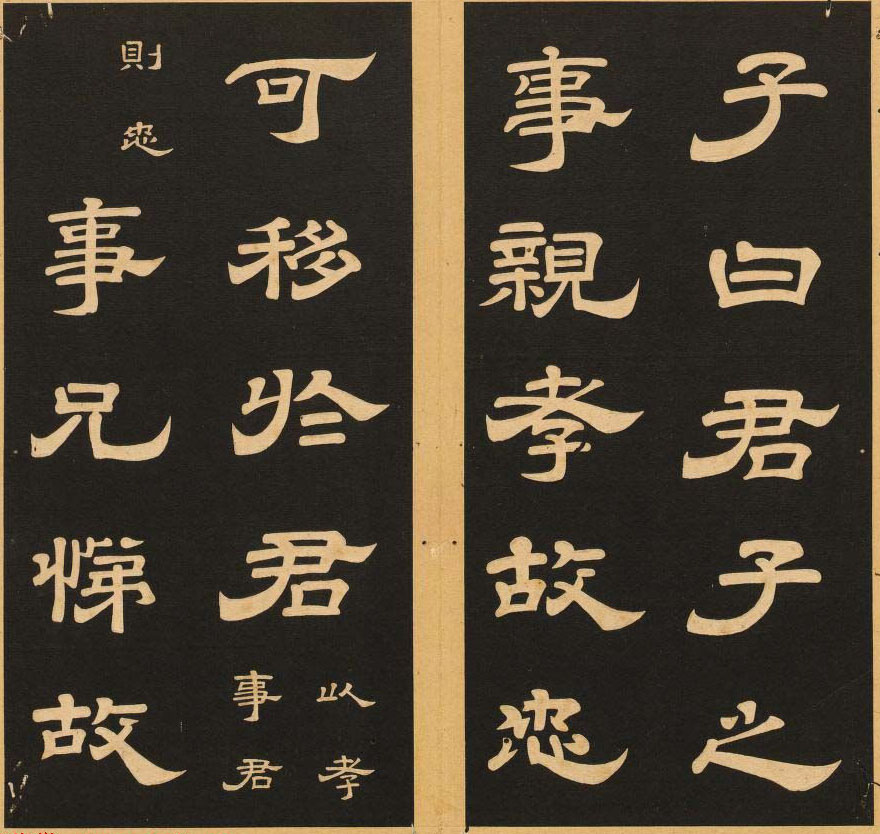 子曰君子之
事親孝故忠
可移於君以孝事君
則忠事兄悌故